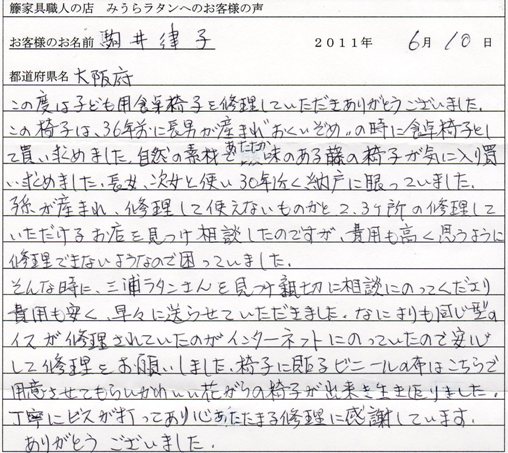 籐家具職人の店 みうらラタンへのお客様の声
お客様のお名前 駒井律子 2011年 6月10日
都道府県名 大阪府
この度は子ども用食卓椅子を修理していただきありがとうございました。
この椅子は、36年前に長男が産まれ"おくいぞめ"の時に食卓椅子とし
て買い求めました。自然の素材であたたか味のある藤の椅子が気に入り買
い求めました。長女、次女と使い30年近く納戸に眠っていました。
孫が産まれ、修理して使えないものかと2.3ヶ所の修理して
いただけるお店を見つけ相談したのですが、費用も高く思うように
修理できないようなので困っていました。
そんな時に、三浦ラタンさんを見つけ親切に相談にのってくださり
費用も安く、早々に送らせていただきました。なによりも同じ型の
イスが修理されていたのがインターネットにのっていたので安心
して修理をお願いしました。椅子に貼るビニールの布はこちらで
用意させてもらいかわいい花がらの椅子が出来き生きたりました。
丁寧にビスが打ってあり心あたたまる修理に感謝しています。
ありがとうございました。